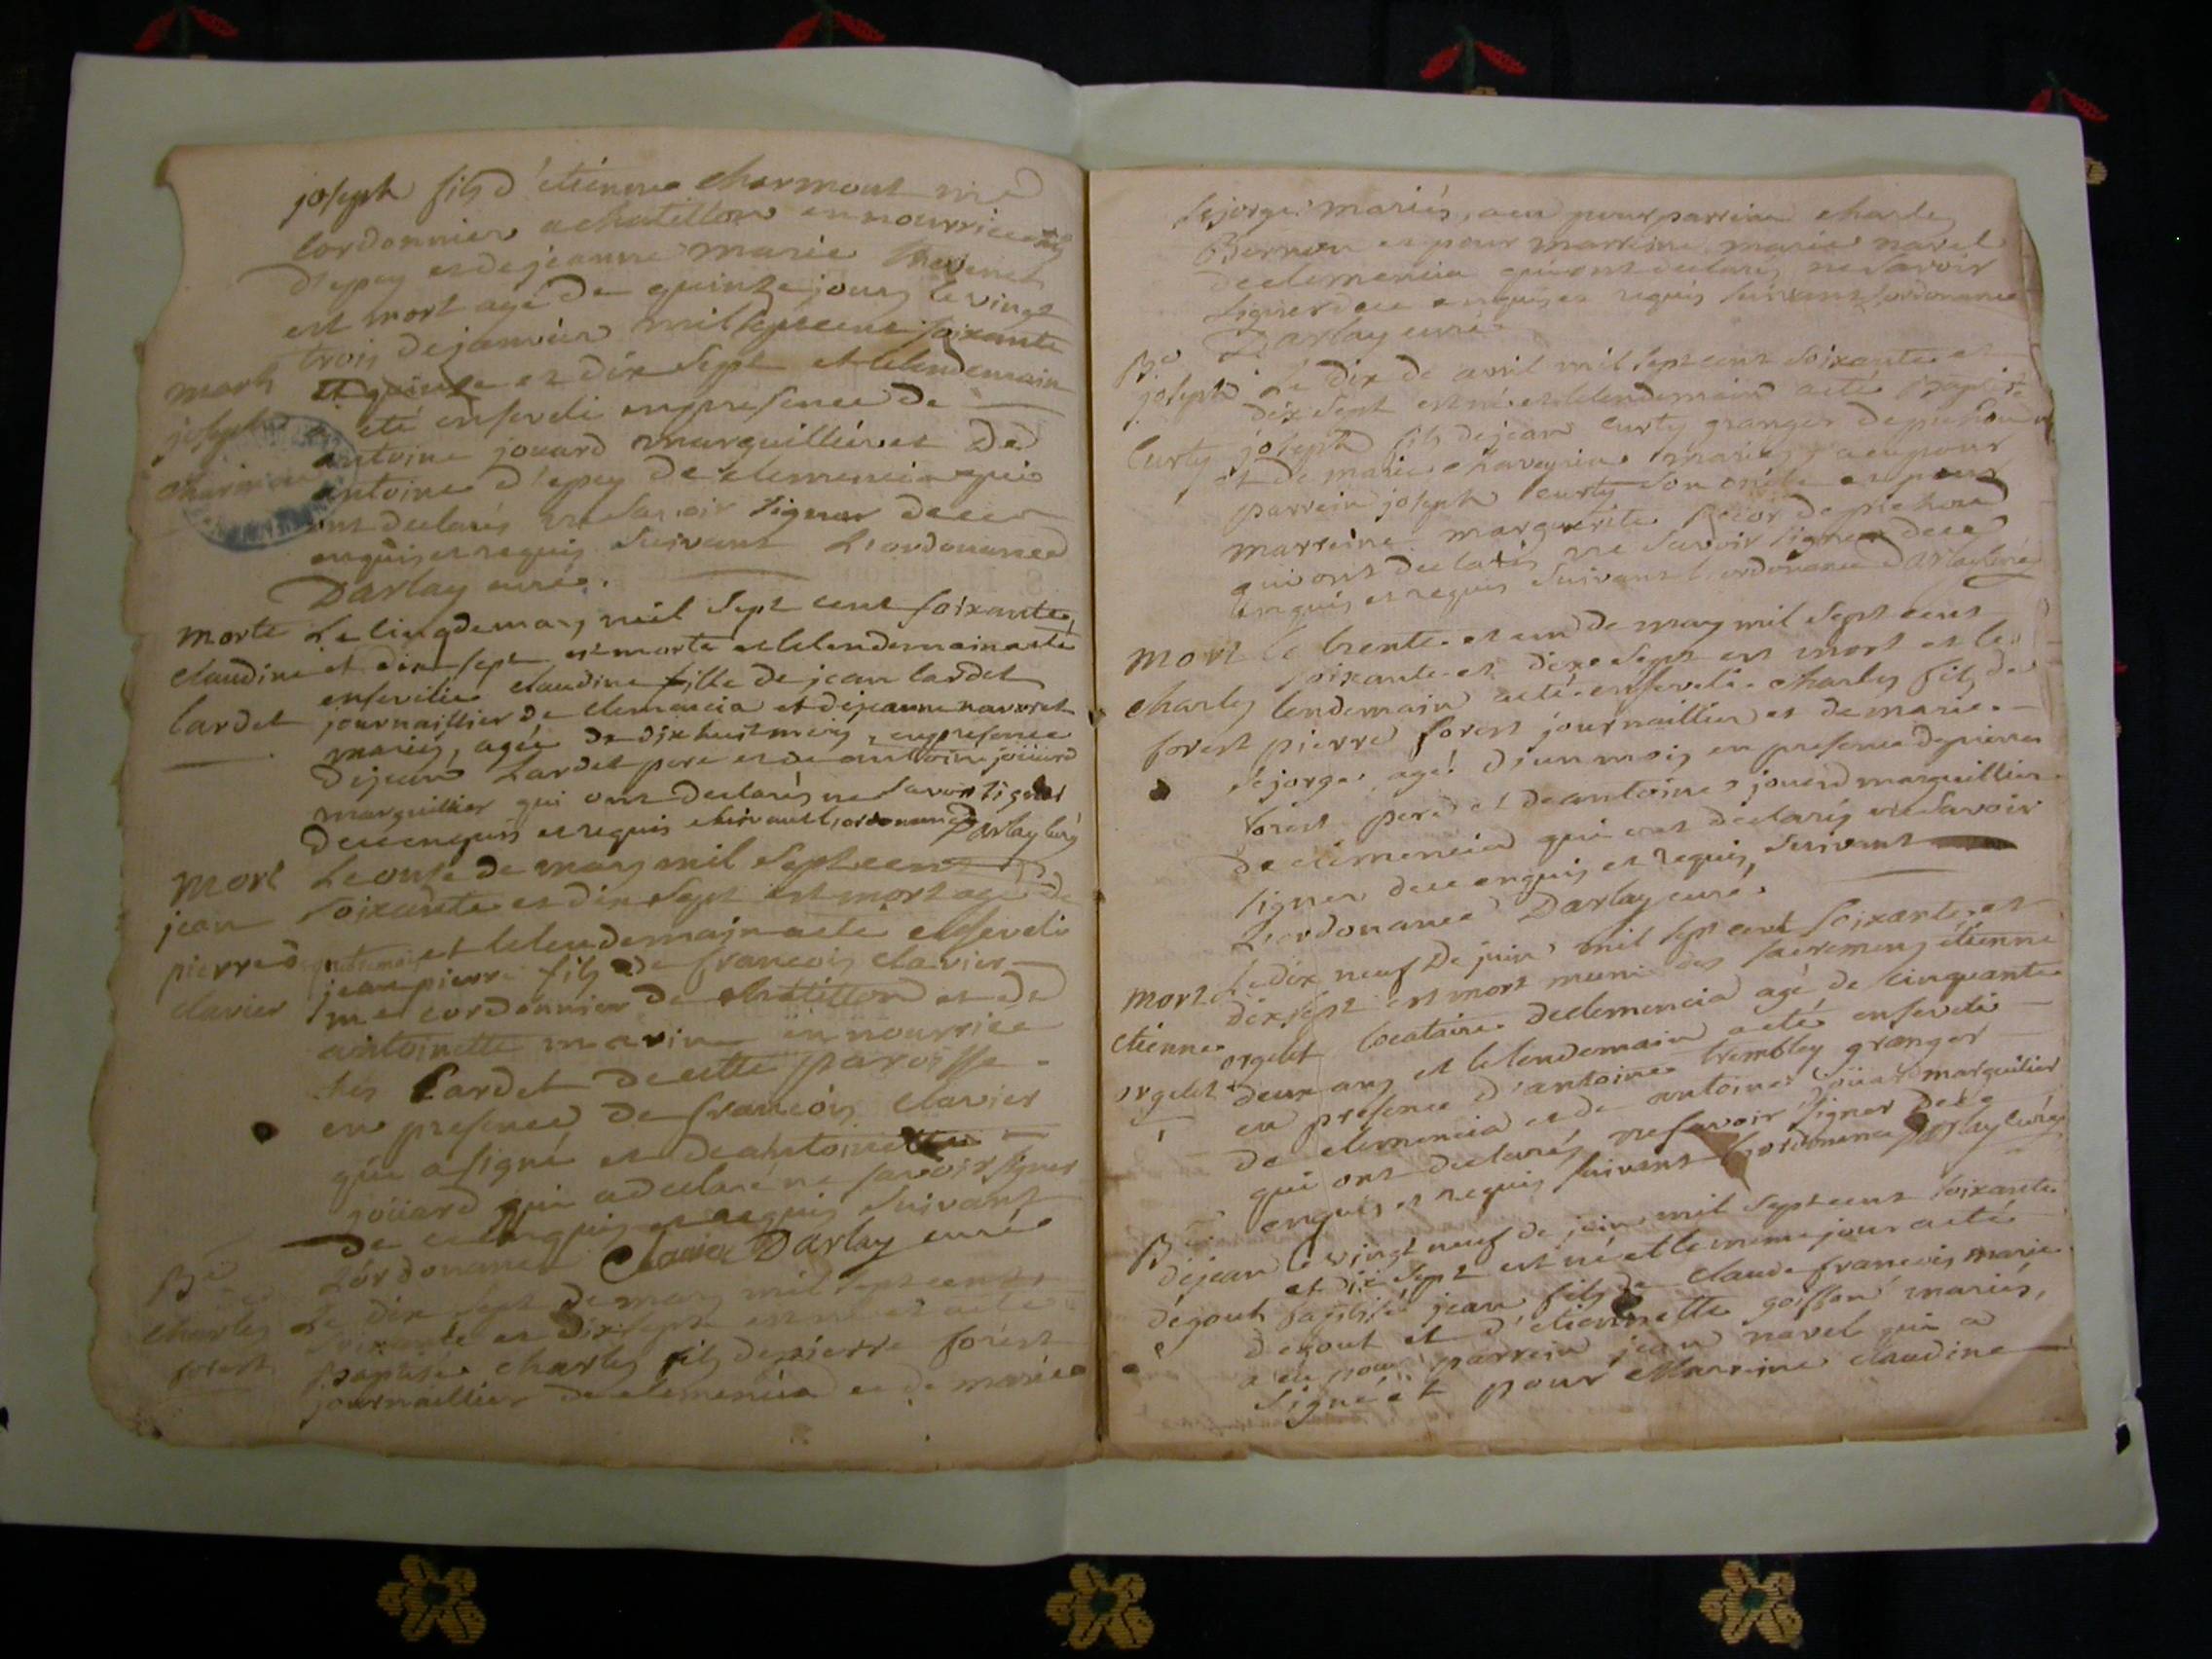 joseph fils d'étienne charmont me
cordonnier a chatillon en nourrice chez
d'epey et de jeanne marie
est mort agé de quinze jours le vingt
trois de janvier mil sept cent soixante
mort
et quinze et dix sept et le lendemain
joseph
a eté enseveli en presence de
antoine jouard marguillier et de
charmont
antoine d'epey de clemencia qui
ont declarés ne savoir signer de ce
enquis et requis suivant l'ordonnance
Darlay curé.
morte Le cinq de mars mil sept cent soixante
claudine et dix sept est morte et le lendemain a eté
ensevelie claudine fille de jean lardet
lardet journaillier de clemencia et de jeanne
mariés, agée de dix huit mois, en presence
de jean Lardet pere et de antoine joüard
marguillier qui ont declarés ne savoir signer
de ce enquis et requis suivant l'ordonnance Darlay curé
mort Le onse de mars mil sept cent
jean soixante et dix sept est mort agé de
pierre et le lendemain a eté enseveli
jean pierre fils de francois clavier
clavier me cordonnier de chatillon et de
antoinette en nourrice
chés Lardet de cette paroisse
en presence de francois clavier
qui a signé et de antoine
joüard qui a declaré ne savoir signer
de ce enquis et requis suivant
L'ordonance Clavier Darlay curé
B.
Le dix sept de mars mil sept cent
charles soixante et dix sept est né et a eté
forest baptisé charles fils de pierre forest
journaillier de clemencia et de marie
sejorge mariés, a eu pour parrein charles
Bernon et pour marreine marie navel
de clemencia qui ont declarés ne savoir
signer de ce enquis et requis suivant l'ordonance
Darlay curé
B.
joseph Le dix de avril mil sept cent soixante et
dix sept est né et le lendemain a eté baptisé
Curty joseph fils de jean curty granger de
et de marie mariés, a eu pour
parrein joseph curty son oncle et pour
marreine marguerite de
qui ont declarés ne savoir signer de ce
enquis et requis suivant l'ordonance Darlay curé
mort le trente et un de mars mil sept cent
soixante et dix sept est mort et le
charles lendemain a eté enseveli charles fils de
forest pierre forest journaillier et de marie
sejorge, agé d'un mois en presence de pierre
forest pere et de antoine jouard marguillier
de clemencia qui ont declarés ne savoir
signer de ce enquis et requis, suivant
L'ordonance Darlay curé.
mort Le dix neuf de juin mil sept cent soixante et
dix sept est mort muni des sacremens étienne
étienne orgelet locataire de clemencia agé de cinquante
orgelet deux ans et le lendemain a eté enseveli
en presence d'antoine trembley granger
de clemencia et de antoine joüard marguilier
qui ont declarés ne savoir signer de ce
enquis et requis suivant l'ordonance Darlay curé
B.
de jean Le vingt neuf de juin mil sept cent soixante
et dix sept est né et le meme jour a eté
dégout baptisé jean fils de claude francois marie
degout et d'étiennette goiffon mariés,
a eu pour parrein jean navel qui a
signé et pour Marreine claudine